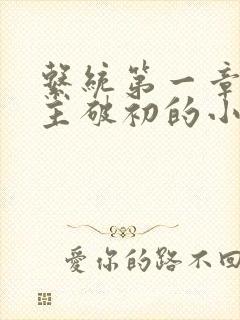 繫統第一章
主破初的小
愛你的路不回